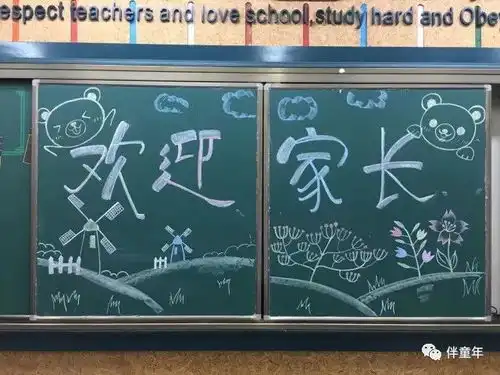 espect teachers and love school,study hard and Obe
欢迎 家长
伴童年